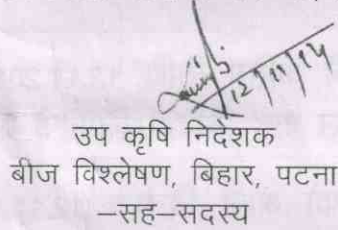 12/11/14
उप कृषि निदेशक
बीज विश्लेषण, बिहार, पटना
–सह–सदस्य